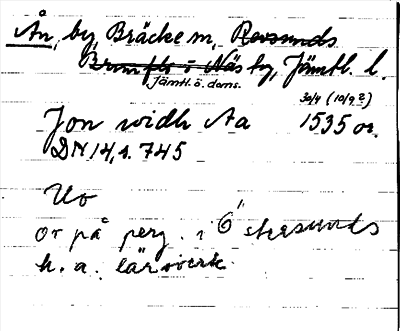 Ån, by, Bräcke sn, Revsunds
Brunflo o Näs tg, Jämtl. l.
Jämtl. ö. doms.
30/4 (10/9?)
Jon widh Aa 1535 or.
DN 14, s. 745
Uo
or på perg. i Östersunds
h. a. lärov­erk.